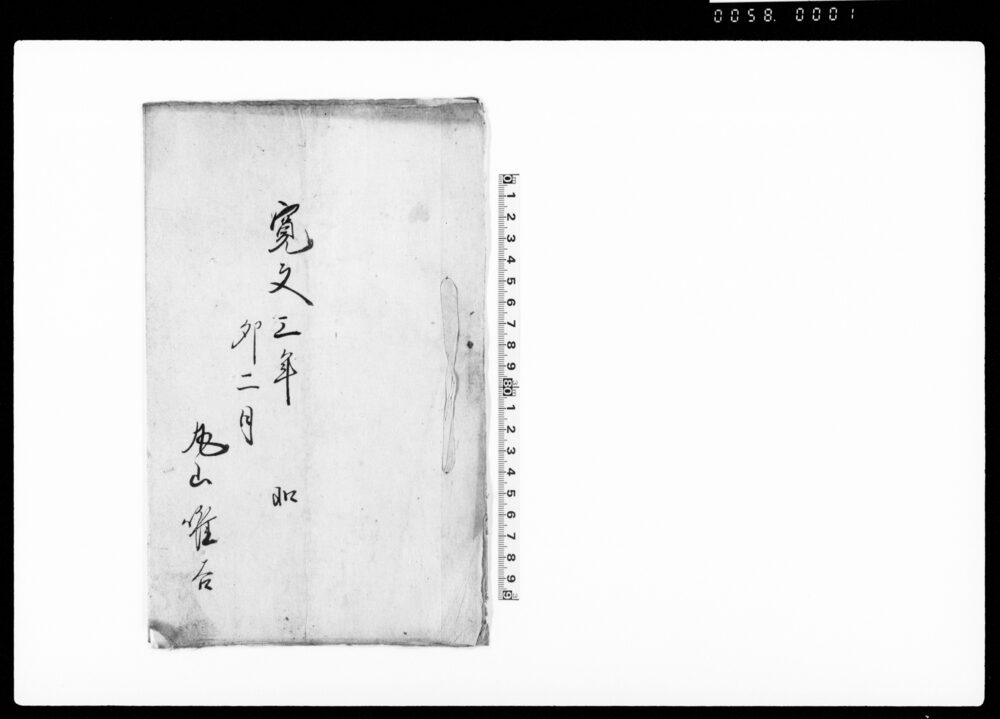 0058. 0001
1 2 3 4 5 6 7 8 9 1 2 3 4 5 6 7 8 9
寛文三年
卯二月
山